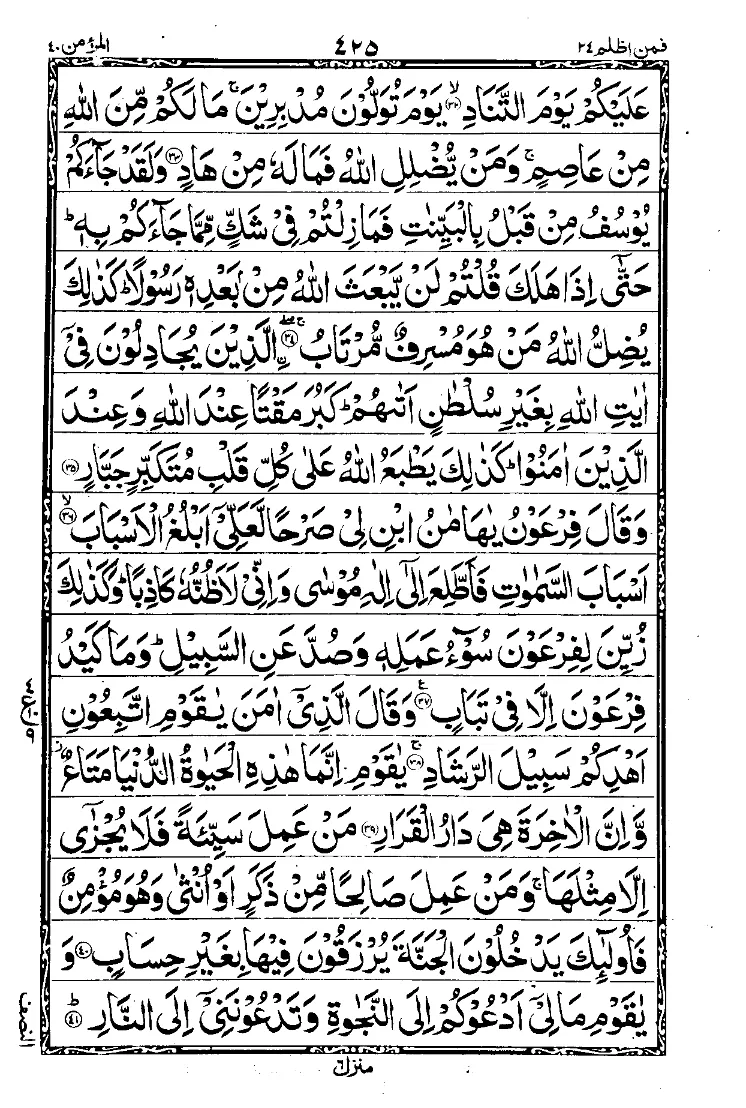 فمن اظلم ٢٤
٤٢٥
المؤمن ٤٠
عَلَيْكُمْ يَوْمَ التَّنَادِ ۙ﴿۳۲﴾ يَوْمَ تُوَلُّوْنَ مُدْبِرِيْنَ ۚ مَا لَكُمْ مِّنَ اللّٰهِ
مِنْ عَاصِمٍ ۚ وَمَنْ يُّضْلِلِ اللّٰهُ فَمَا لَهٗ مِنْ هَادٍ ﴿۳۳﴾ وَلَقَدْ جَآءَكُمْ
يُوْسُفُ مِنْ قَبْلُ بِالْبَيِّنٰتِ فَمَا زِلْتُمْ فِيْ شَكٍّ مِّمَّا جَآءَكُمْ بِهٖ ؕ
حَتّٰۤى اِذَا هَلَكَ قُلْتُمْ لَنْ يَّبْعَثَ اللّٰهُ مِنْۢ بَعْدِهٖ رَسُوْلًا ؕ كَذٰلِكَ
يُضِلُّ اللّٰهُ مَنْ هُوَ مُسْرِفٌ مُّرْتَابُ ﴿۳۴﴾ اۨلَّذِيْنَ يُجَادِلُوْنَ فِيْۤ
اٰيٰتِ اللّٰهِ بِغَيْرِ سُلْطٰنٍ اَتٰىهُمْ ؕ كَبُرَ مَقْتًا عِنْدَ اللّٰهِ وَعِنْدَ
الَّذِيْنَ اٰمَنُوْا ؕ كَذٰلِكَ يَطْبَعُ اللّٰهُ عَلٰى كُلِّ قَلْبِ مُتَكَبِّرٍ جَبَّارٍ ﴿۳۵﴾
وَقَالَ فِرْعَوْنُ يٰهَامٰنُ ابْنِ لِيْ صَرْحًا لَّعَلِّيْۤ اَبْلُغُ الْاَسْبَابَ ۙ﴿۳۶﴾
اَسْبَابَ السَّمٰوٰتِ فَاَطَّلِعَ اِلٰۤى اِلٰهِ مُوْسٰى وَاِنِّيْ لَاَظُنُّهٗ كَاذِبًا ؕ وَكَذٰلِكَ
زُيِّنَ لِفِرْعَوْنَ سُوْٓءُ عَمَلِهٖ وَصُدَّ عَنِ السَّبِيْلِ ؕ وَمَا كَيْدُ
فِرْعَوْنَ اِلَّا فِيْ تَبَابٍ ﴿۳۷﴾ وَقَالَ الَّذِيْۤ اٰمَنَ يٰقَوْمِ اتَّبِعُوْنِ
اَهْدِكُمْ سَبِيْلَ الرَّشَادِ ۚ﴿۳۸﴾ يٰقَوْمِ اِنَّمَا هٰذِهِ الْحَيٰوةُ الدُّنْيَا مَتَاعٌ ؗ
وَّاِنَّ الْاٰخِرَةَ هِيَ دَارُ الْقَرَارِ ﴿۳۹﴾ مَنْ عَمِلَ سَيِّئَةً فَلَا يُجْزٰۤى
اِلَّا مِثْلَهَا ۚ وَمَنْ عَمِلَ صَالِحًا مِّنْ ذَكَرٍ اَوْ اُنْثٰى وَهُوَ مُؤْمِنٌ
فَاُولٰٓئِكَ يَدْخُلُوْنَ الْجَنَّةَ يُرْزَقُوْنَ فِيْهَا بِغَيْرِ حِسَابٍ ﴿۴۰﴾ وَ
يٰقَوْمِ مَا لِيْۤ اَدْعُوْكُمْ اِلَى النَّجٰوةِ وَتَدْعُوْنَنِيْۤ اِلَى النَّارِ ؕ﴿۴۱﴾
النصف
منزل ٦